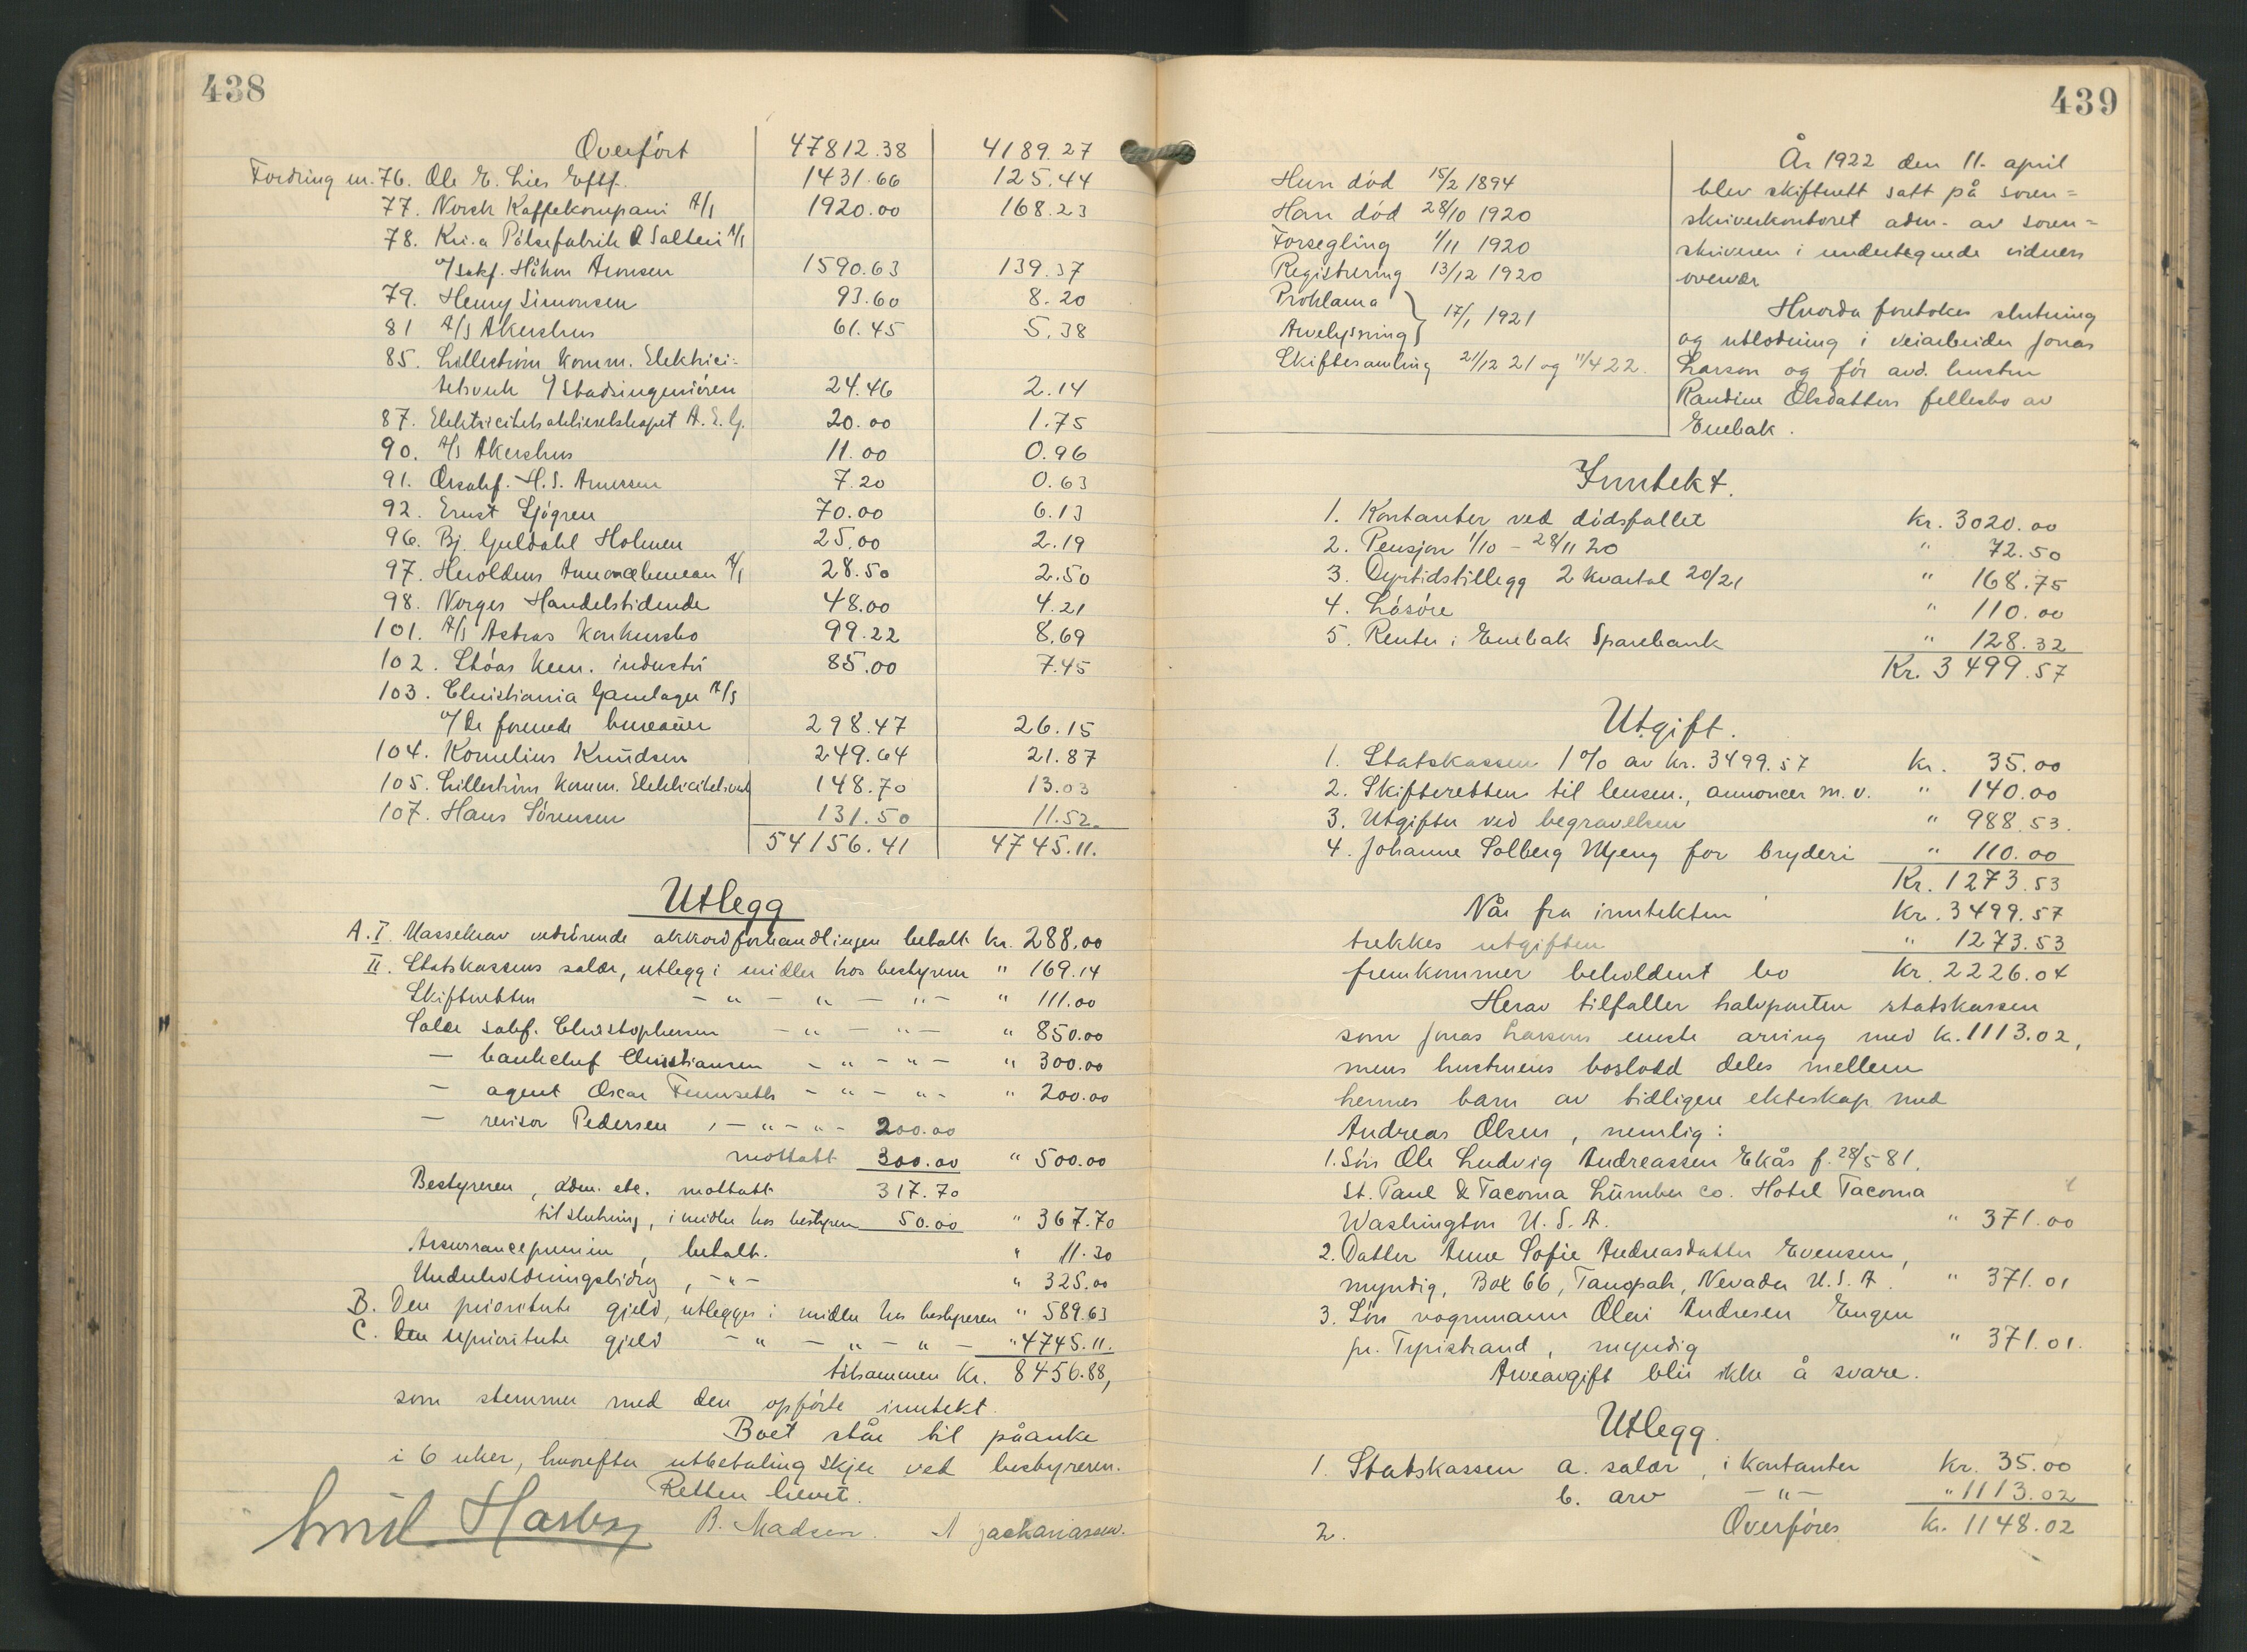 438
Overført 47812.38 4189.27
Fordring nr. 76. Ole E. Lies Eftf. 1431.66 125.44
77. Norsk Kaffekompani A/S 1920.00 168.23
78. Kr.a Pølsefabrik & Salteri A/S
v/ sakf. Håkon Aronsen 1590.63 139.37
79. Henry Simonsen 93.60 8.20
81 A/S Akershus 61.45 5.38
85. Lillestrøm komm. Elektrici-
tetsverk v/ Stadsingeniøren 24.46 2.14
87. Elektricitetsaktieselskapet A.E.G. 20.00 1.75
90. A/S Akershus 11.00 0.96
91. Orsakf. H.S. Arnesen 7.20 0.63
92. Ernst Sjögren 70.00 6.13
96. Bj. Guldahl Holmen 25.00 2.19
97. Heroldens Annoncebureau A/S 28.50 2.50
98. Norges Handelstidende 48.00 4.21
101. A/S Astras konkursbo 99.22 8.69
102. Støas kem. industri 85.00 7.45
103. Christiania Garnlager A/S
v/ De forenede bureauer 298.47 26.15
104. Kornelius Knudsen 249.64 21.87
105. Lillestrøm komm. Elektricitetsverk 148.70 13.03
107. Hans Sørensen 131.50 11.52
54156.41 4745.11.
Utlegg
A. I. Massekrav vedrørende akkordforhandlingen betalt kr. 288.00
II. Statskassens salær, utlegg i midler hos bestyreren " 169.14
Skifteretten - " - " - " - " 111.00
Salær sakf. Christophersen - " - " - " 850.00
— bankchef Christiansen - " - " - " 300.00
— agent Oscar - " - " - " 200.00
— revisor Pedersen, - " - " - 200.00
mottatt 300.00 " 500.00
Bestyreren, adm. etc. mottatt 317.70
til slutning, i midler hos bestyreren 50.00 " 367.70
Assurancepremie, betalt. " 11.30
Underholdningsbidrag, - " - " 325.00
B. Den prioriterte gjeld, utlegges i midler hos bestyreren " 589.63
C. Den uprioriterte gjeld - " - " - " - " 4745.11.
tilsammen kr. 8456.88,
som stemmer med den opførte inntekt.
Boet står til påanke
i 6 uker, hvorefter utbetaling skjer ved bestyreren.
Retten hevet.
Emil B. Madsen. A Zachariassen.
439
Hun død 15/2 1894
Han død 28/10 1920
Forsegling 1/11 1920
Registrering 13/12 1920
Proklama
Arvelysning } 17/1 1921
Skiftesamling 21/12 21 og 11/4 22.
År 1922 den 11. april
blev skifterett satt på soren-
skriverkontoret adm. av soren-
skriveren i undertegnede vidners
overvær
Hvorda foretokes slutning
og utlodning i veiarbeider Jonas
Larsen og før avd. hustru
Randine Olsdatters fellesbo av
Enebak.
Inntekt.
1. Kontanter ved dødsfallet kr. 3020.00
2. Pensjon 1/10 - 28/11 20 " 72.50
3. Dyrtidstillegg 2 kvartal 20/21 " 168.75
4. Løsøre " 110.00
5. Renter i Enebak Sparebank " 128.32
Kr. 3499.57
Utgift.
1. Statskassen 1% av kr. 3499.57 kr. 35.00
2. Skifteretten til annoncer m.v. " 140.00
3. Utgifter ved begravelsen " 988.53.
4. Johanne Solberg Mjeng for bryderi " 110.00
Kr. 1273.53
Når fra inntekten Kr. 3499.57
trekkes utgiften " 1273.53
fremkommer beholdent bo Kr. 2226.04
Herav tilfaller halvparten statskassen
som Jonas Larsens eneste arving med kr. 1113.02,
mens hustruens boslodd deles mellem
hennes barn av tidligere ekteskap med
Andreas Olsen, nemlig:
1. Søn Ole Ludvig Andreassen Ekås f. 28/5 81.
St. Paul & Tacoma Lumber co. Hotel Tacoma
Washington U.S.A. " 371.00
2. Datter Anne Sofie Andreasdatter Evensen,
myndig, Box 66, Tanopah, Nevada U.S.A. " 371.01
3. Søn vognmann Olai Andresen Engen
pr. Tyristrand, myndig " 371.01.
Arveavgift blir ikke å svare.
Utlegg.
1. Statskassen a. salær, i kontanter kr. 35.00
b. arv - " - " 1113.02
2. Overføres kr. 1148.02